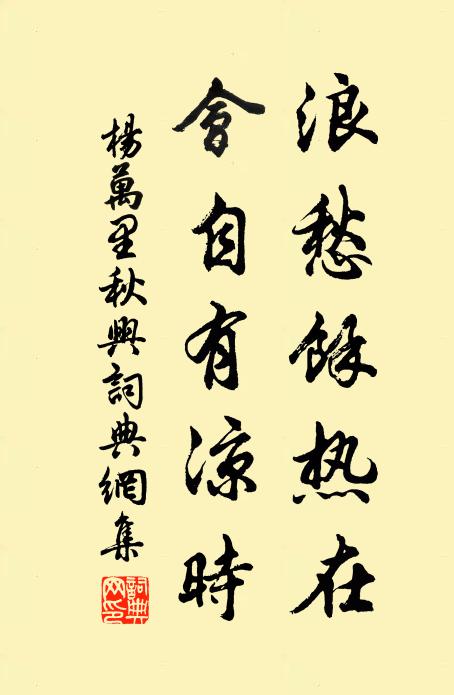 浪愁餘热在
會自有涼時
楊萬里秋興詞典網集
詞典
网印